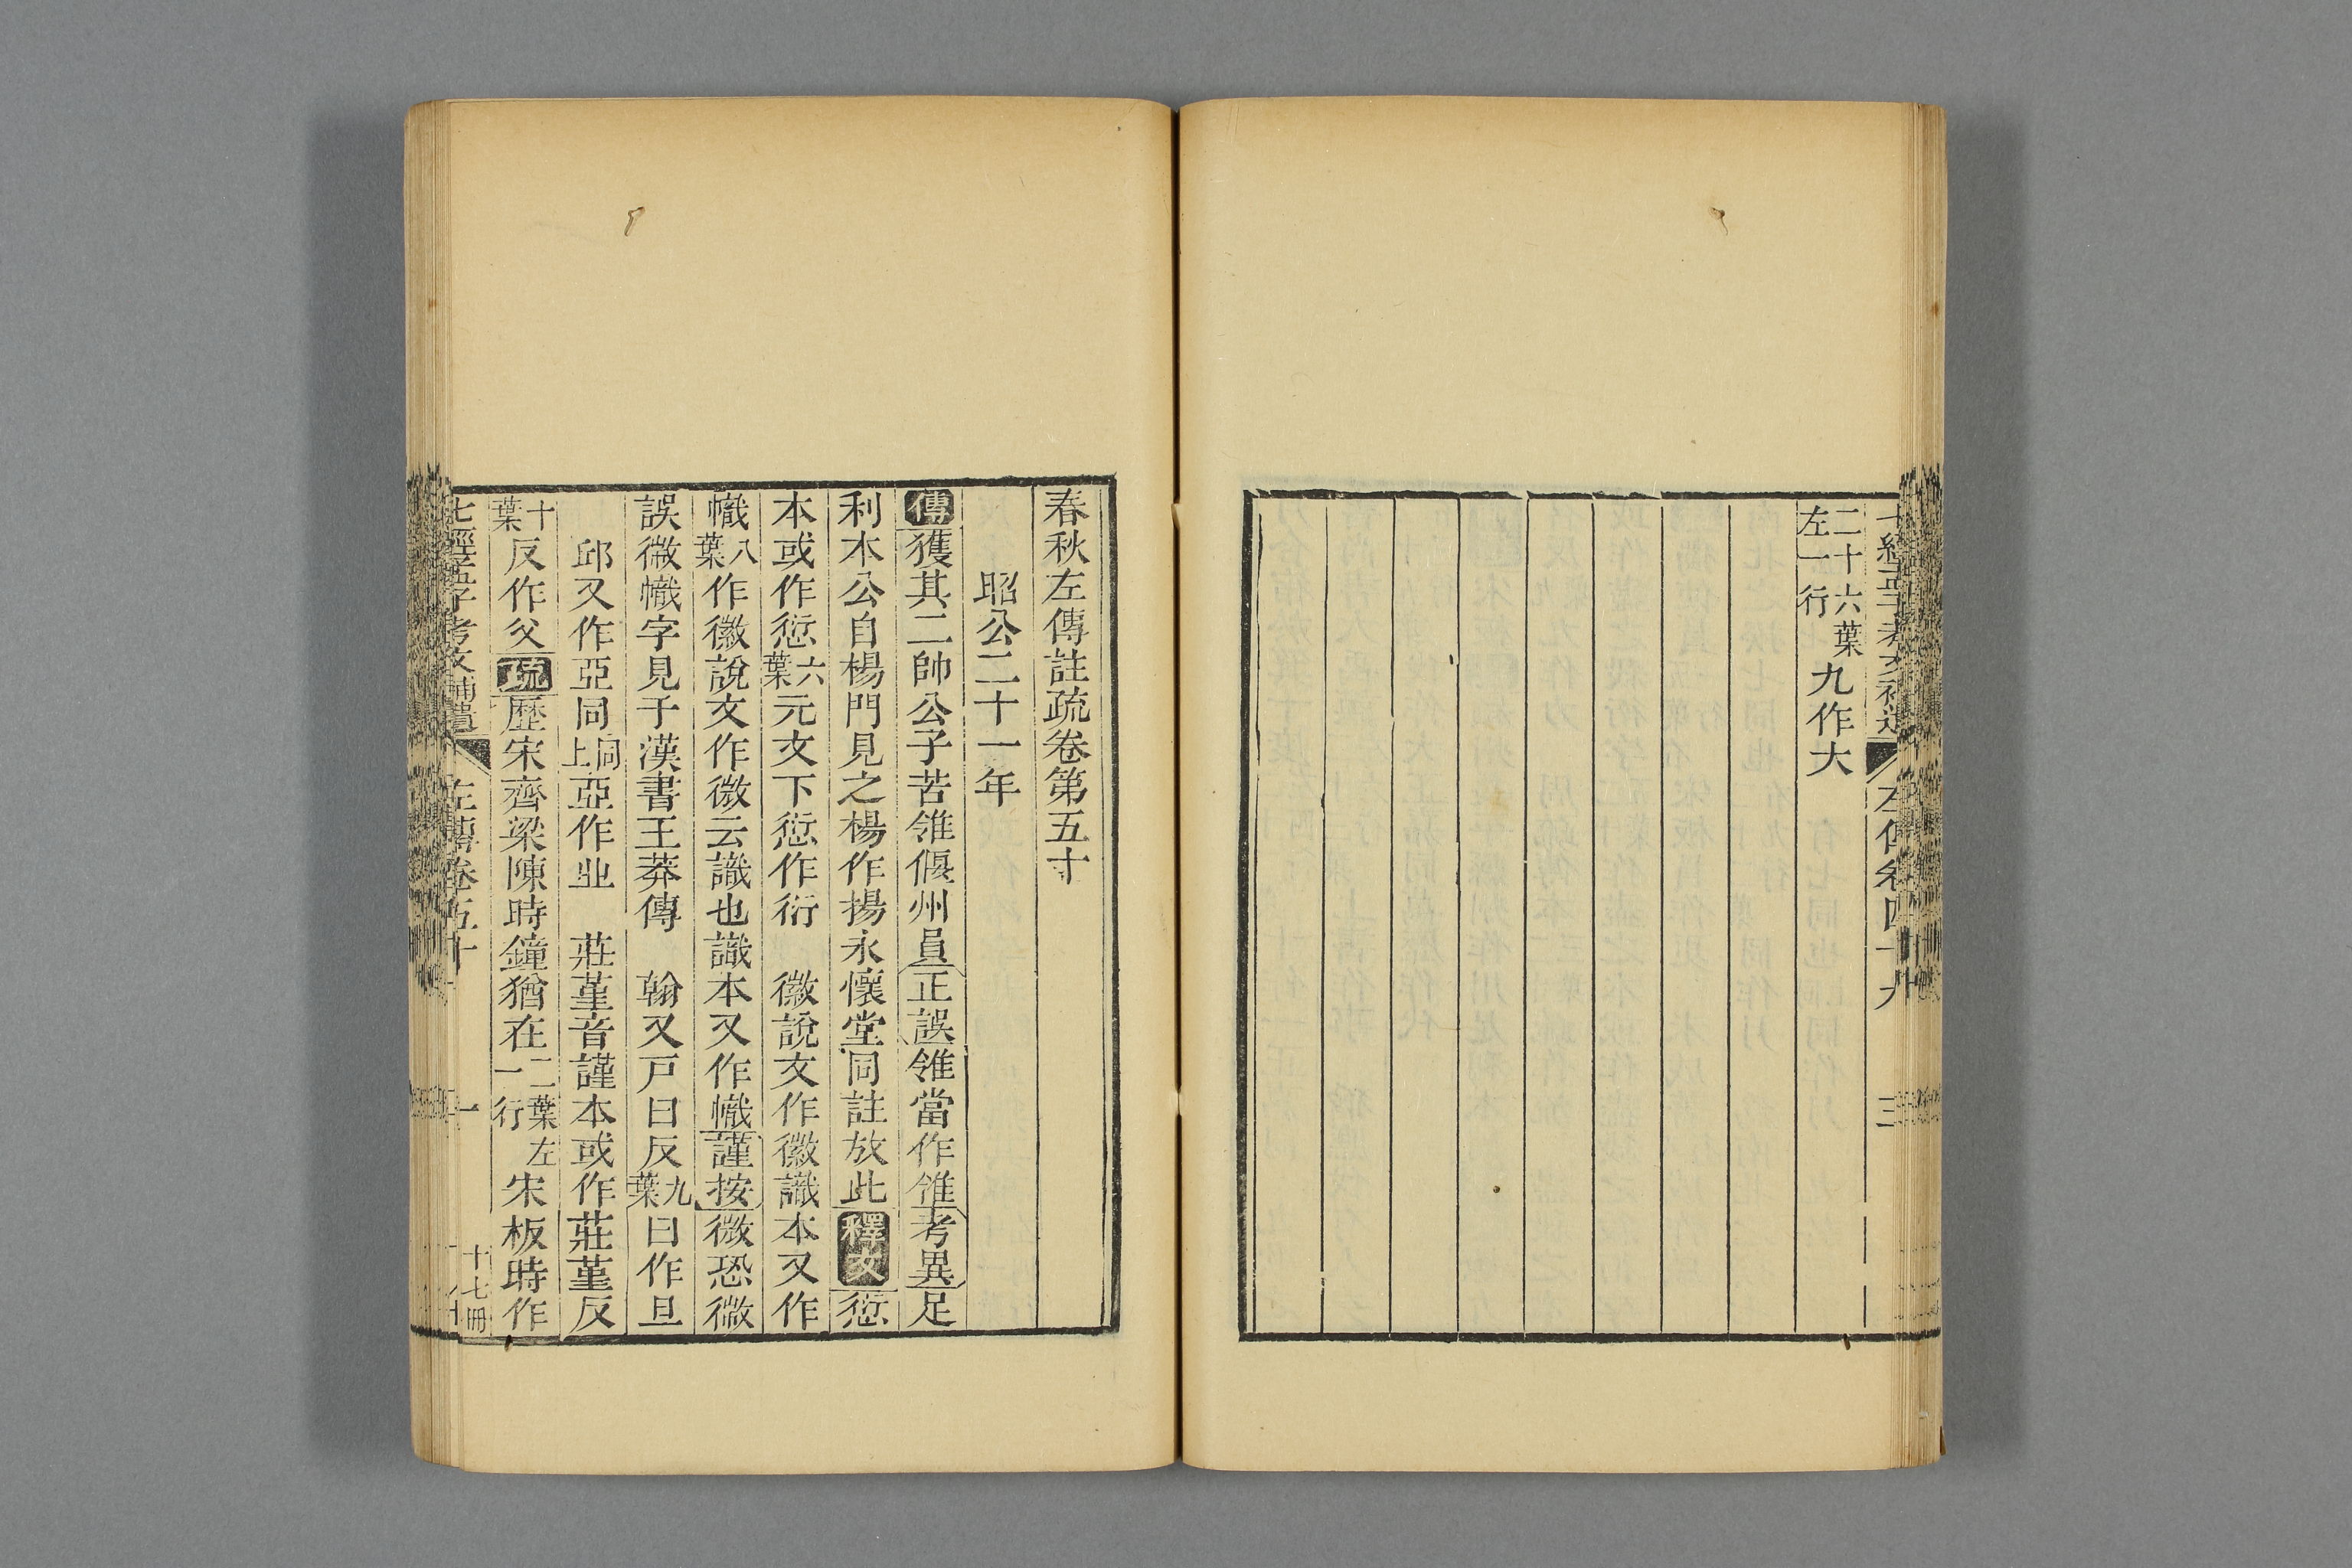 二十六葉左一行九作大
左傳卷四十九
三
春秋左傳註疏卷第五十
昭公二十一年
傳獲其二帥公子苦雂偃州員正誤雂當作雂考異足
利本公自楊門見之楊作揚永懷堂同註放此釋文愆
本或作愆六葉元文下愆作衍 徽說文作徽識本又作
幟八葉作徽說文作微云識也識本又作幟謹按微恐微
誤微幟字見子漢書王莽傳 翰又戸曰反九葉曰作旦
邱又作亞同同上亞作亚 莊堇音謹本或作莊堇反
十葉反作父疏歷宋齊梁陳時鐘猶在二葉左一行宋板時作
七經孟子考文補遺 左傳卷五十 一
十七冊